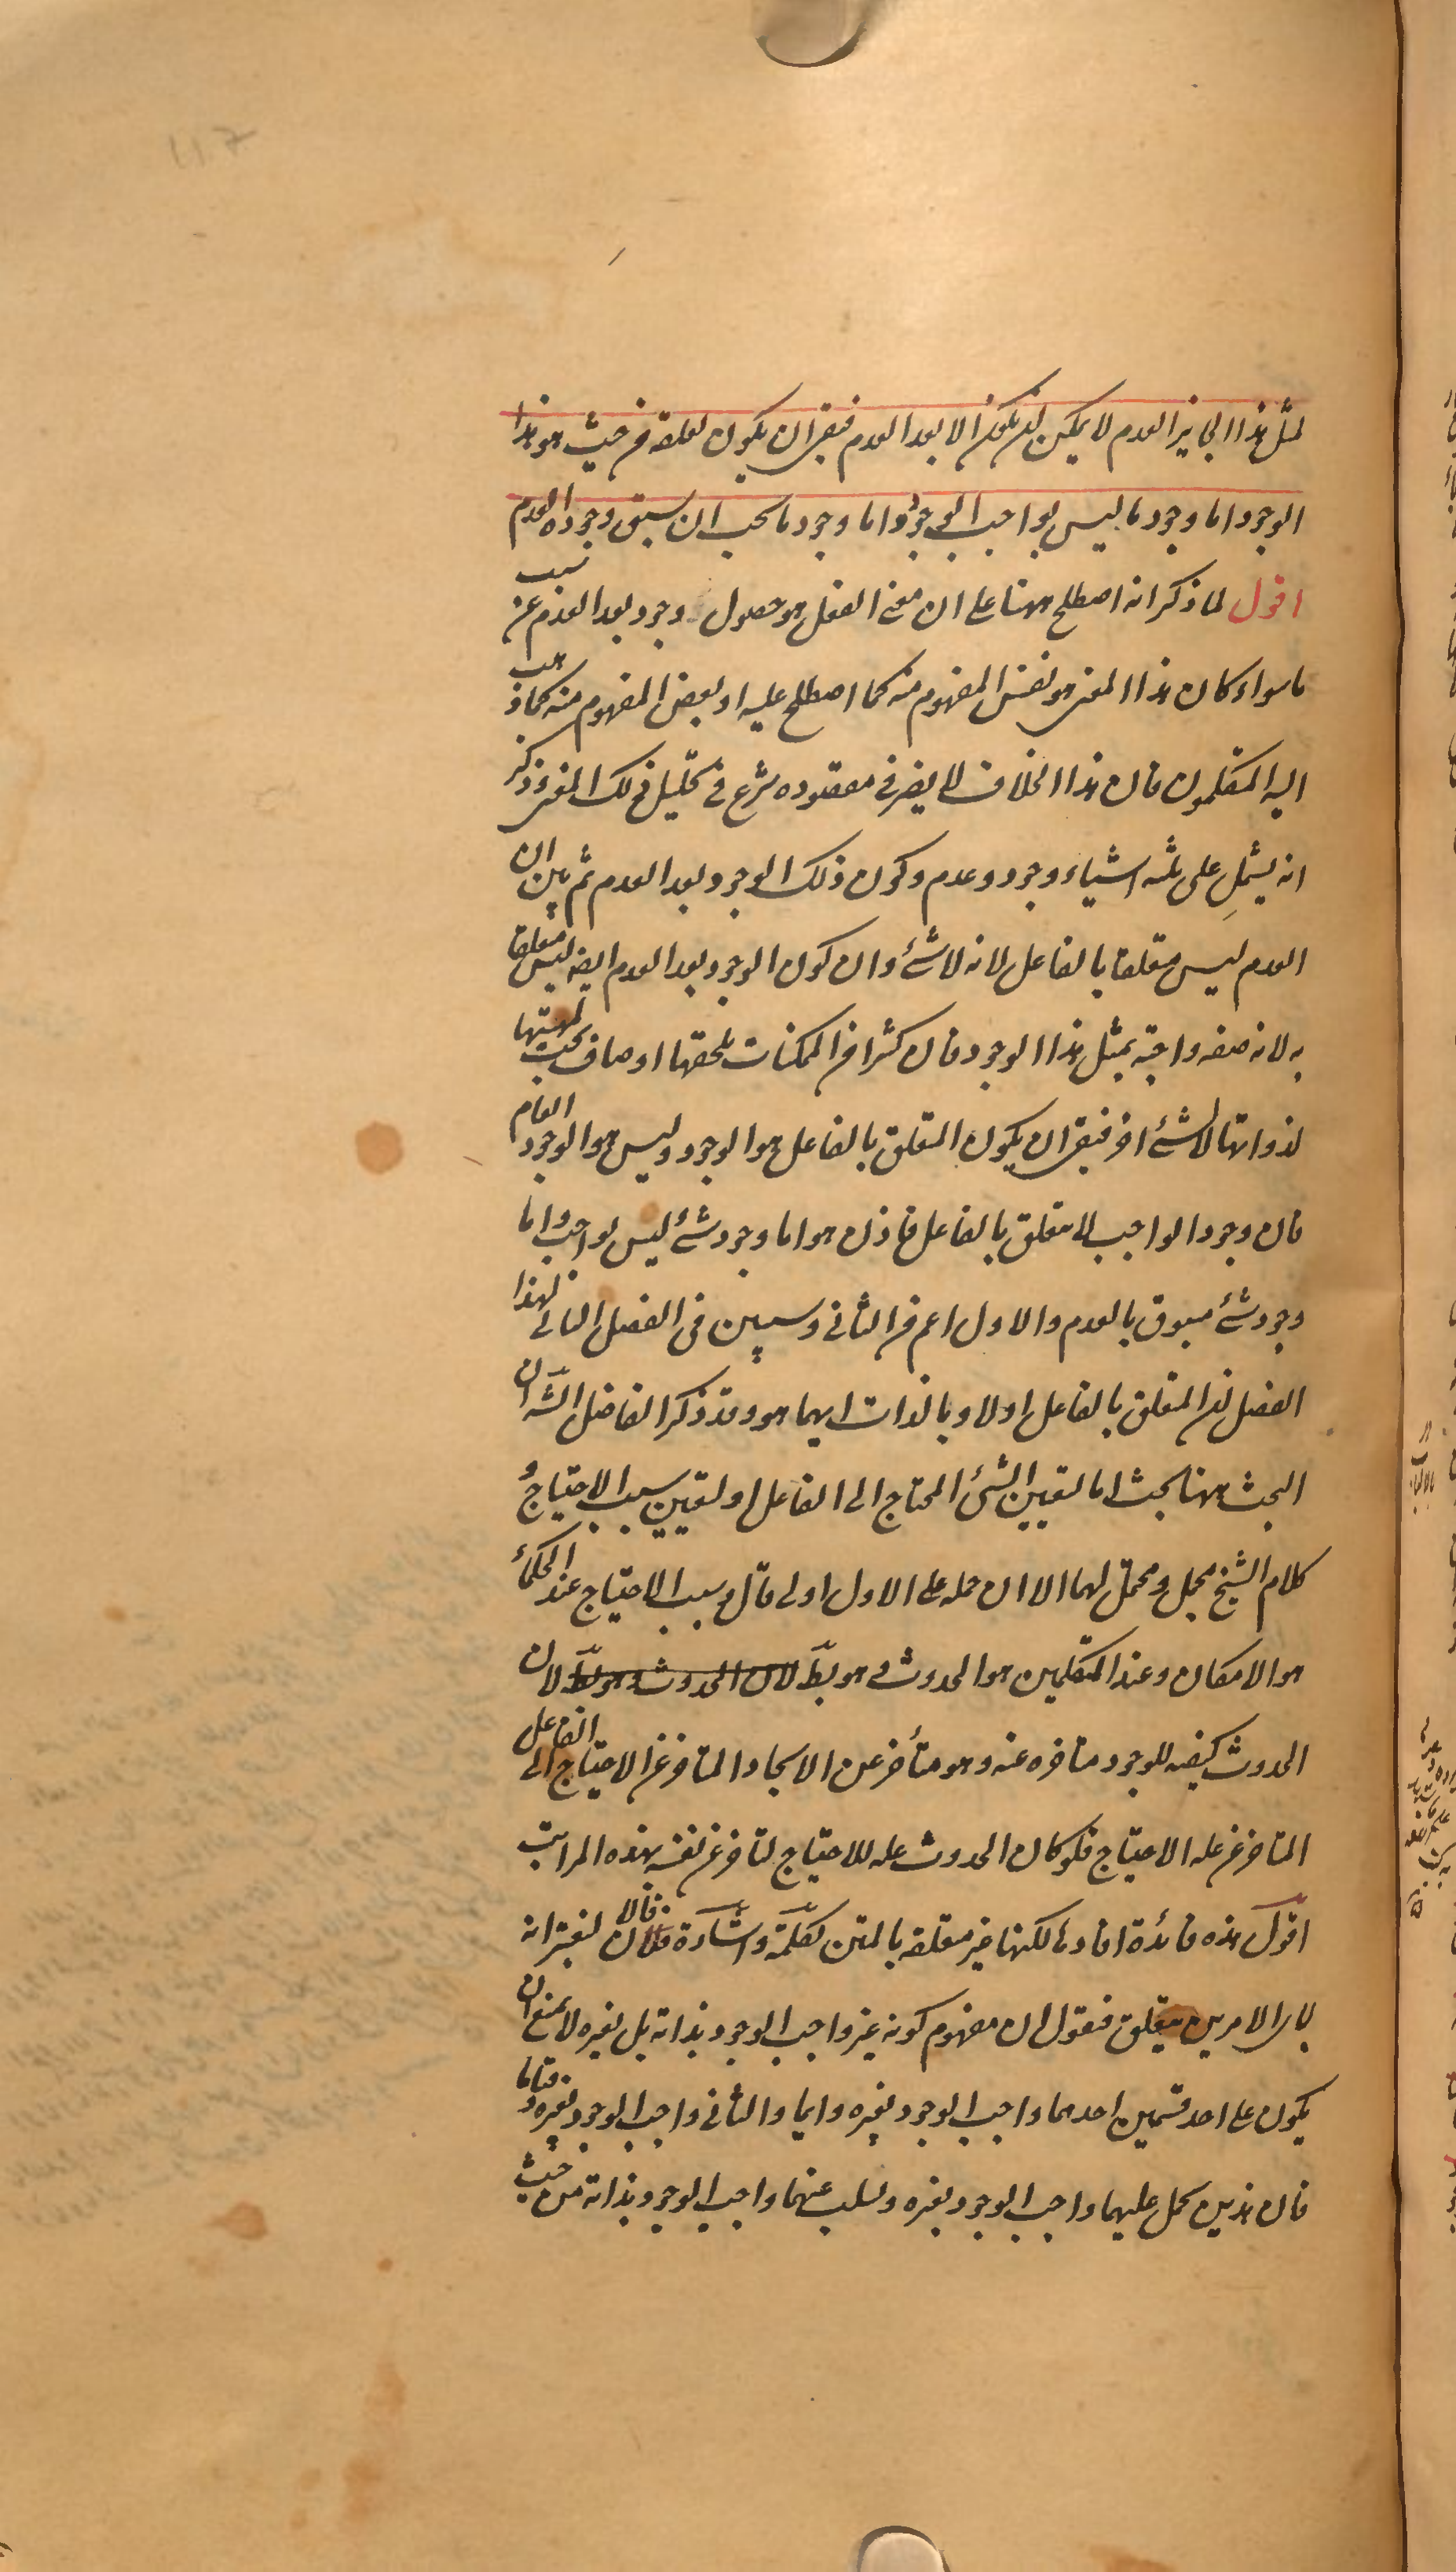 لمثل هذا الجايز العدم لا يمكن ان يكون الا بعد العدم فبقى ان يكون تعلقه من حيث هو هذا
الوجود اما وجود ما ليس بواجب الوجود واما وجود ما يجب ان يسبق وجوده العدم
اقول لما ذكر انه اصطلح ههنا على ان معنى الفعل هو حصول وجود بعد العدم عن سبب
ما سواء كان هذا المعنى هو نفس المفهوم منه كما اصطلح عليه او بعض المفهوم منه كما ذهب
اليه المتكلمون فان هذا الخلاف لا يضر فى مقصوده شرع فى تحليل ذلك المعنى وذكر
انه يشمل على ثلثه اشياء وجود وعدم وكون ذلك الوجود بعد العدم ثم بين ان
العدم ليس متعلقا بالفاعل لانه لا شئ وان كون الوجود بعد العدم ايضا ليس متعلقا
به لانه صفه واجبة بمثل هذا الوجود فان كثيرا من الممكنات يلحقها اوصاف يجب لمهيتها
لذواتها لا لشئ اخر فبقى ان يكون المتعلق بالفاعل هو الوجود وليس هو الوجود العام
فان وجود الواجب لا يتعلق بالفاعل فاذن هو اما وجود شئ ليس بواجب واما
وجود شئ مسبوق بالعدم والاول اعم من الثانى وسيبين فى الفصل التالى لهذا
الفصل ان المتعلق بالفاعل اولا وبالذات ايهما هو وقد ذكر الفاضل الشه ان
البحث ههنا بحث اما لتعيين الشئ المحتاج الى الفاعل او لتعيين سبب الاحتياج و
كلام الشيخ مجمل ومحتمل لهما الا ان حمله على الاول اولى قال وسبب الاحتياج عند الحكماء
هو الامكان وعند المتكلمين هو الحدوث وهو بط لان الحدوث وهو بط لان
الحدوث كيفيه للوجود متاخره عنه وهو متأخر عن الايجاد المتاخر عن الاحتياج الى الفاعل
المتاخر عن عله الاحتياج فلو كان الحدوث عله للاحتياج لتاخر عن نفسه بهذه المراتب
اقول هذه فائدة افادها لكنها غير متعلقه بالمتن تكملة واشارة فالان لنعتبر انه
لاى الامرين يتعلق فنقول ان مفهوم كونه غير واجب الوجود بذاته بل بغيره لا يمنع ان
يكون على احد قسمين احدهما واجب الوجود بغيره دايما والثانى واجب الوجود بغيره وقتا ما
فان هذين يحمل عليهما واجب الوجود بغيره ويسلب عنهما واجب الوجود بذاته من حيث